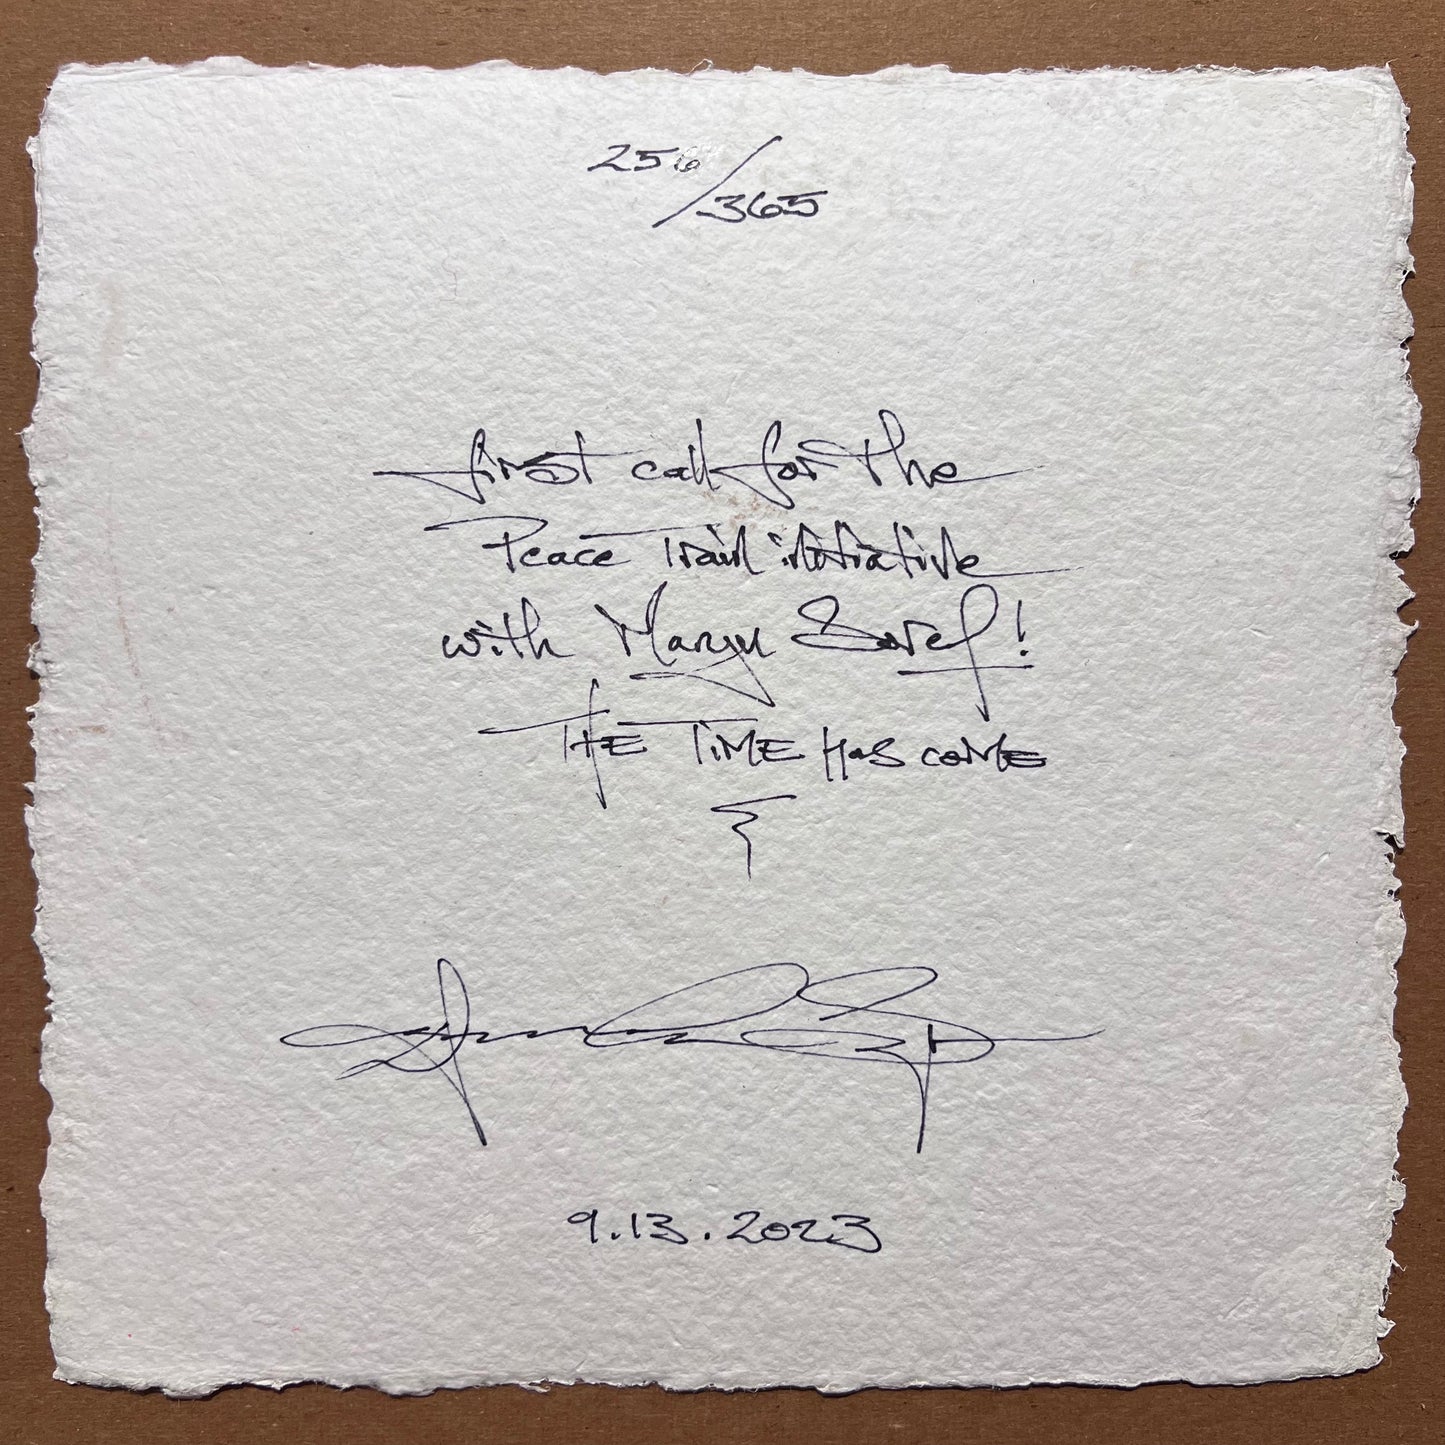 256/365
first call for the
Peace Train initiative
with Maryu Soref!
THE TIME HAS COME
9.13.2023